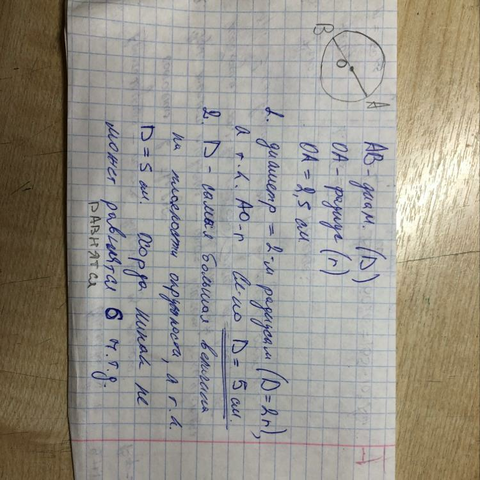 В
О
А
АВ - диам. (D)
ОА - радиус (r)
ОА = 2,5 см
1. диаметр = 2-м радиусам (D = 2r),
а т.к. АО - r D = 5 см.
2. D - самая большая величина
на плоскости окружности, а т.к.
D = 5 см. Хорда никак не
может равняться 6 ч.т.д.
РАВНЯТСЯ